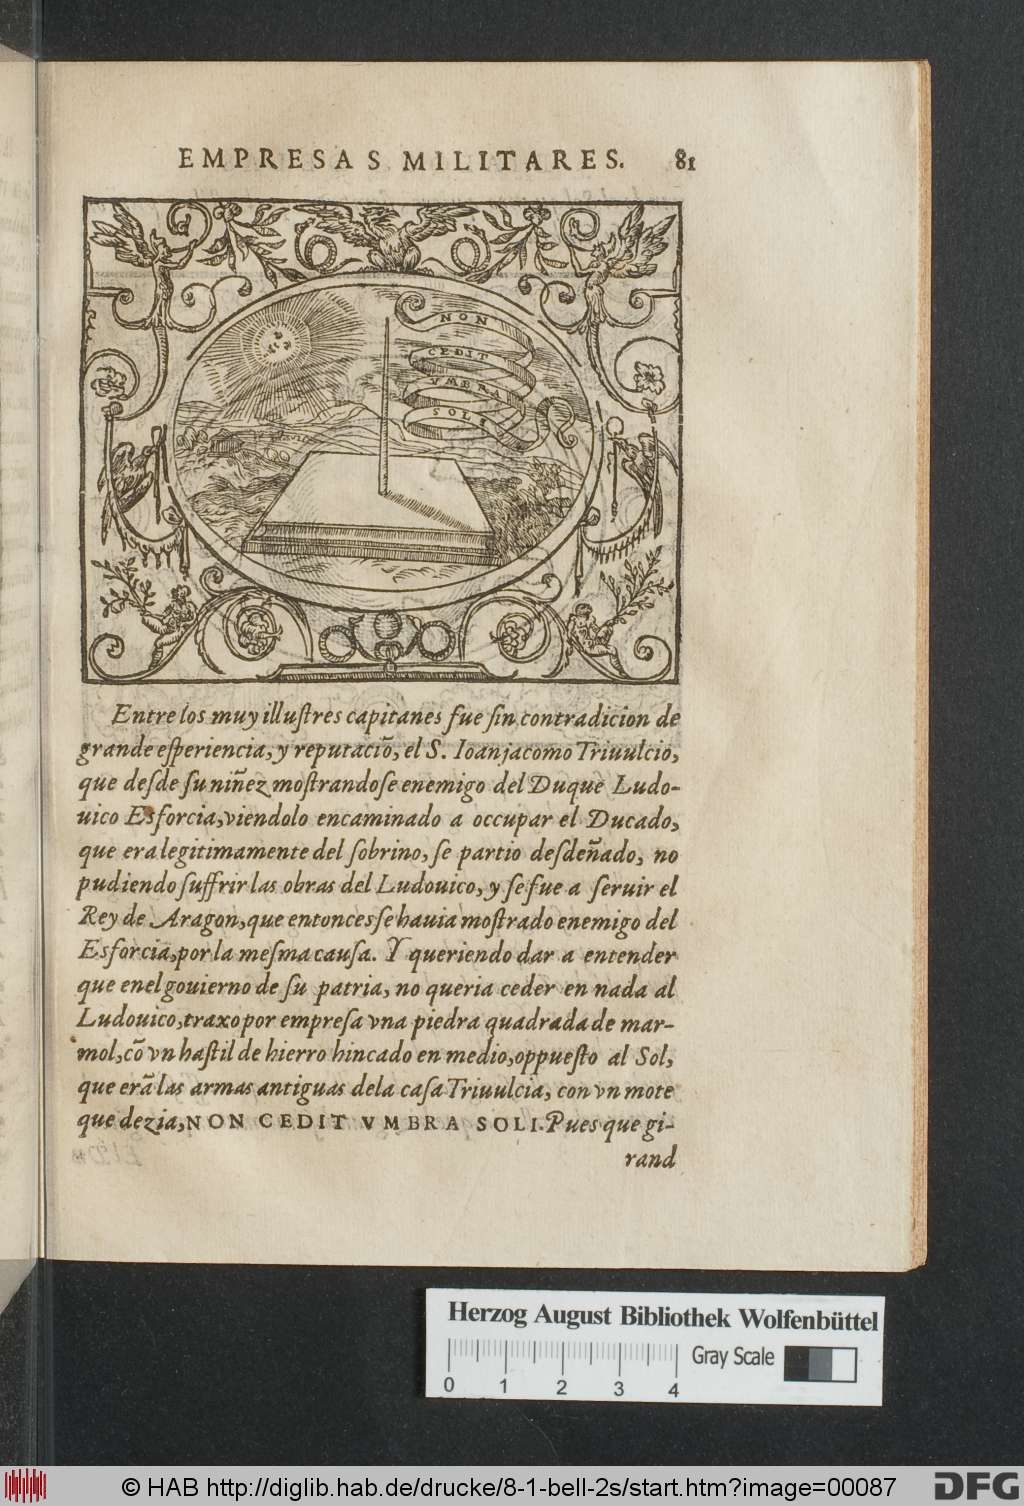 EMPRESAS MILITARES. 81
NON
CEDIT
VMBRA
SOLI
Entre los muy illuſtres capitanes fue ſin contradicion de
grande eſperiencia, y reputaciõ, el S. Ioanjacomo Triuulcio,
que deſde ſu niñez moſtrandoſe enemigo del Duque Ludo-
uico Esforcia, viendolo encaminado a occupar el Ducado,
que era legitimamente del ſobrino, ſe partio deſdeñado, no
pudiendo ſuffrir las obras del Ludouico, y ſe fue a ſeruir el
Rey de Aragon, que entonces ſe hauia moſtrado enemigo del
Esforcia, por la meſma cauſa. Y queriendo dar a entender
que enel gouierno de ſu patria, no queria ceder en nada al
Ludouico, traxo por empreſa vna piedra quadrada de mar-
mol, cõ vn haſtil de hierro hincado en medio, oppueſto al Sol,
que erã las armas antiguas dela caſa Triuulcia, con vn mote
que dezia, NON CEDIT VMBRA SOLI. Pues que gi-
rand
Herzog August Bibliothek Wolfenbüttel
Gray Scale
0 1 2 3 4
© HAB http://diglib.hab.de/drucke/8-1-bell-2s/start.htm?image=00087
DFG